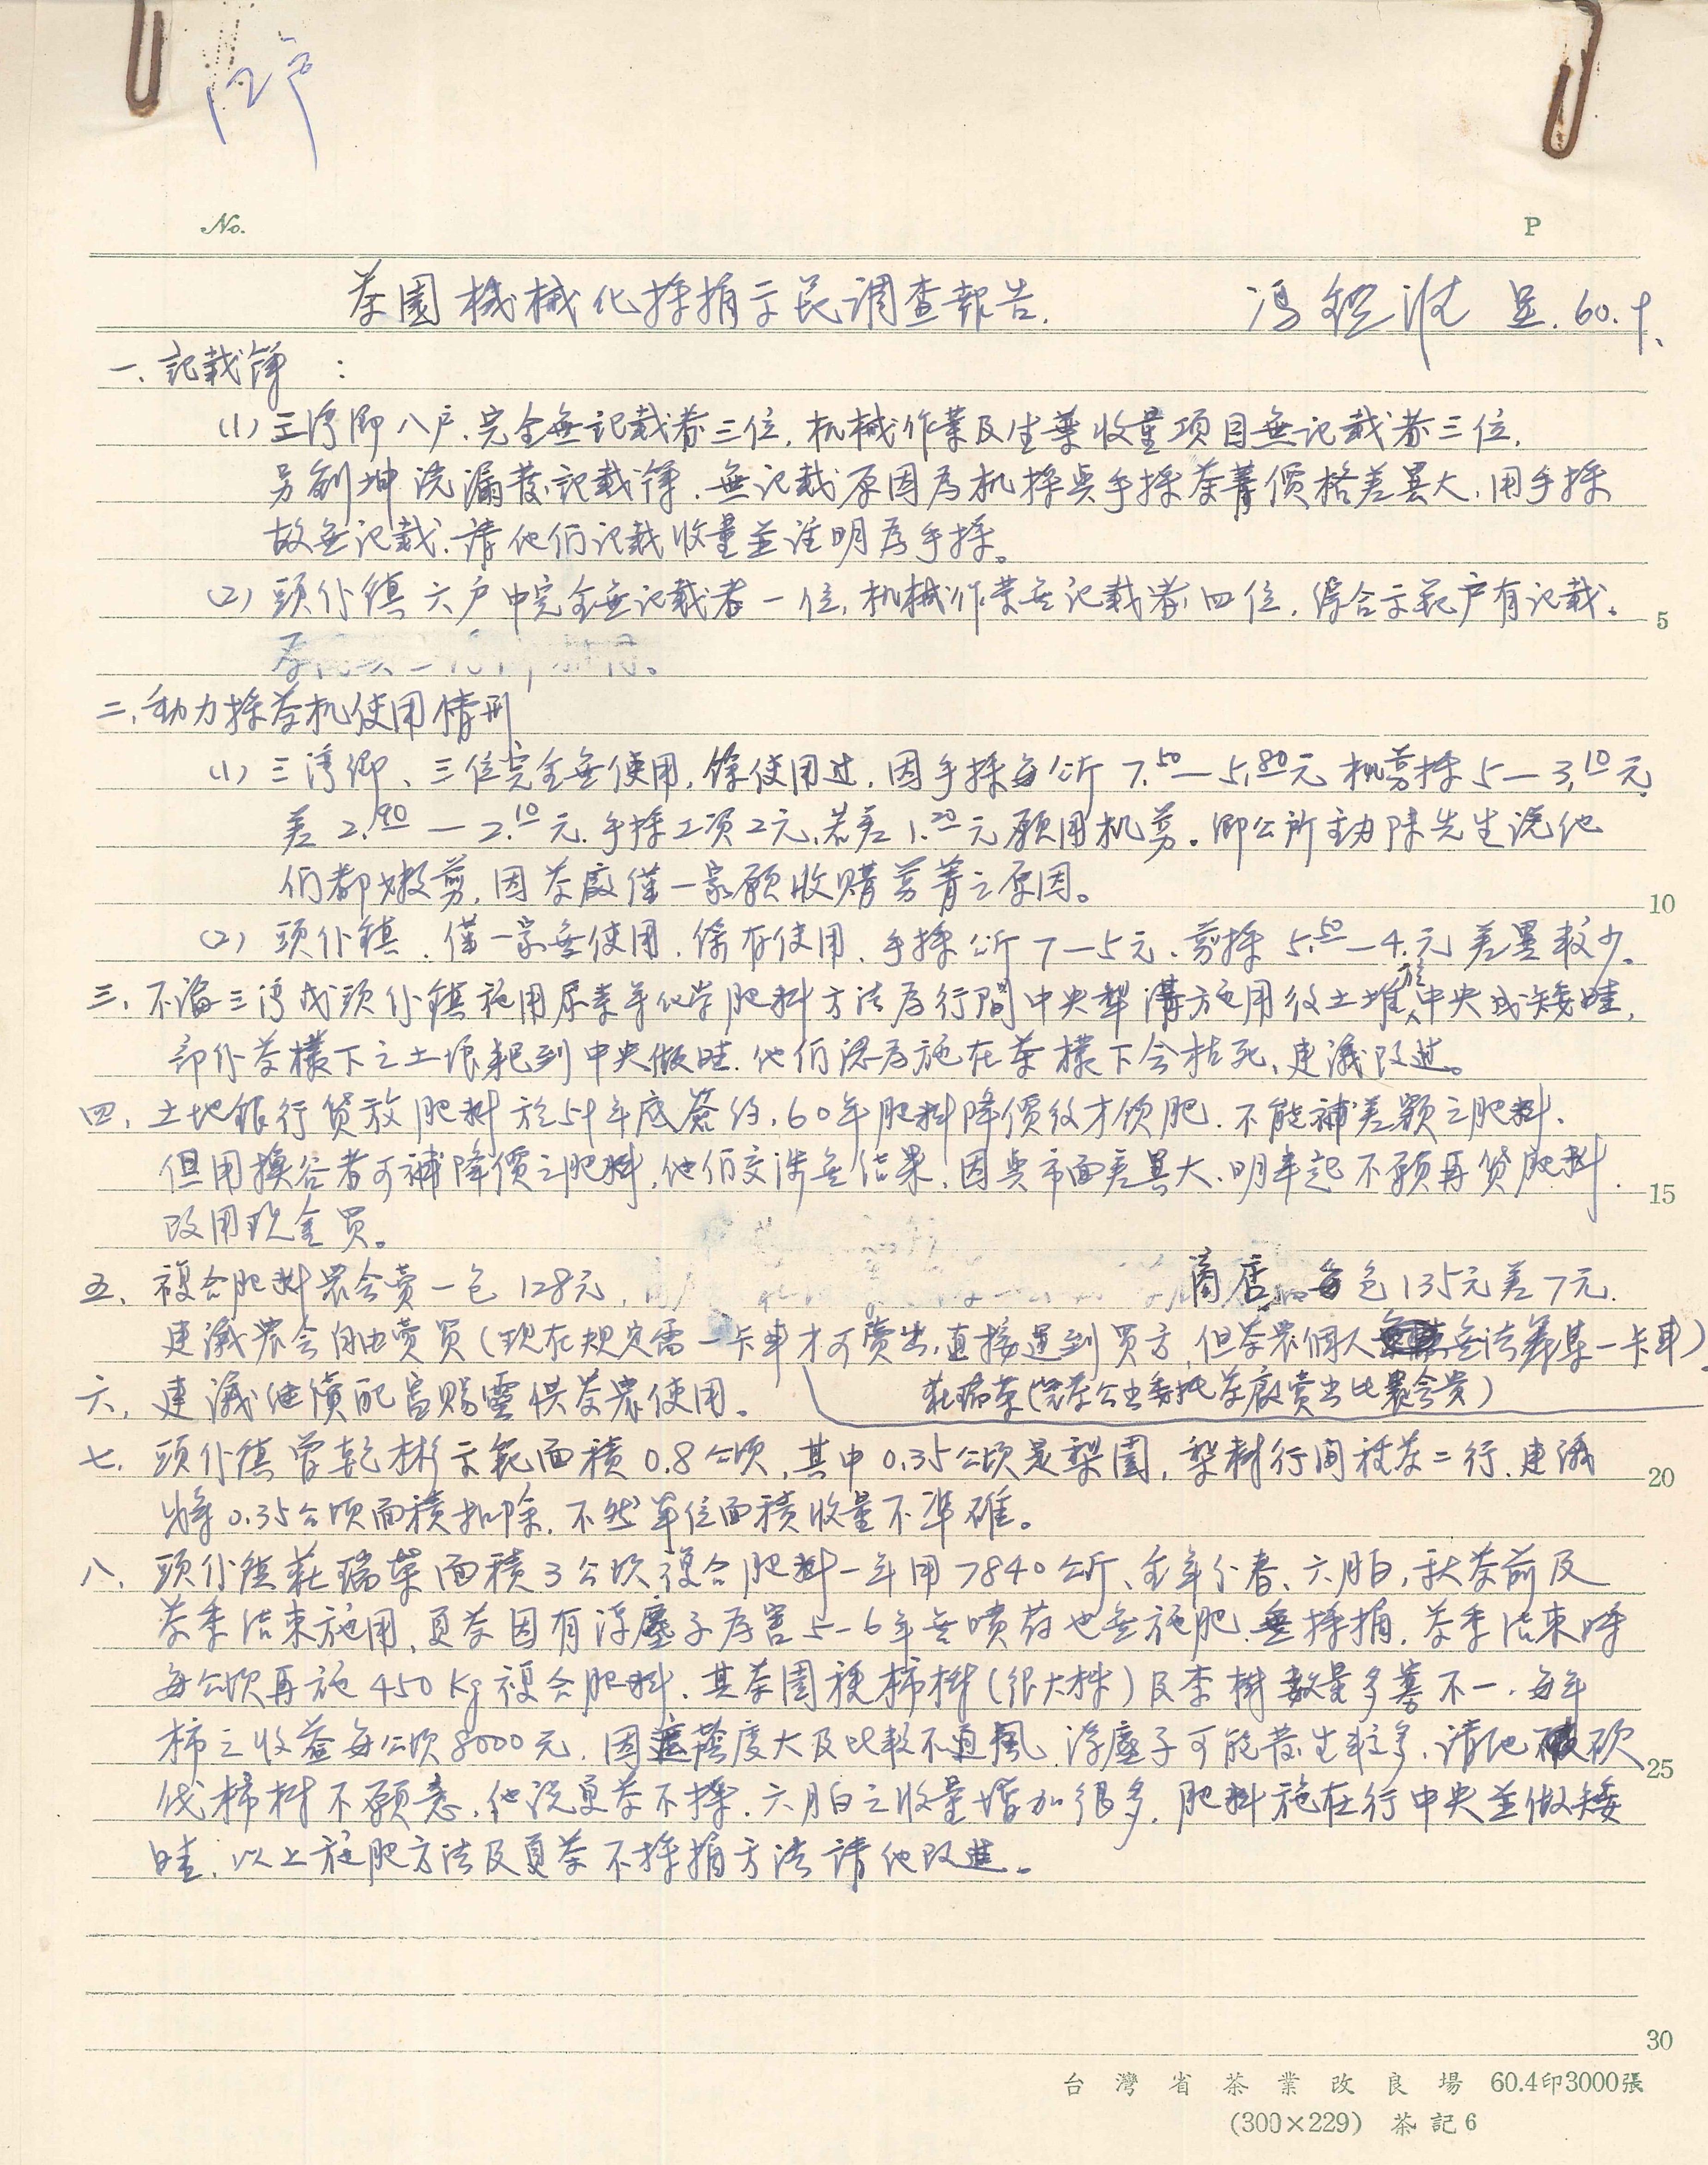 No.
P
茶園機械化採摘示范調查報告.
馮鑑淮 呈. 60.
一、記載簿 :
(1) 三湾鄉八户、完全無記載者三位, 机械作業及生葉收量項目無記載者三位,
另劉坤 説漏發記載簿. 無記載原因為机採與手採茶菁價格差異大, 用手採
故無記載、請他们記載收量並註明為手採。
(2) 頭份鎮六户中完全無記載者一位, 机械作業無記載者四位, 綜合示範户有記載。
5
二、動力採茶机使用情形
(1) 三湾鄉、三位完全無使用, 餘使用过, 因手採每公斤 7.50—5.80元 机剪採 5—3.10元
差 2.40—2.10元. 手採工項2元, 若差1.20元願用机剪。鄉公所主办陳先生説他
们都嫩剪, 因茶廠僅一家願收購剪菁之原因。
10
(2) 頭份鎮、僅一家無使用、餘有使用、手採公斤 7—5元、剪採 5.50—4.元 差異較少。
三、不論三湾或頭份鎮施用尿素等化学肥料方法為行間中央犁溝施用後土堆於中央或矮畦,
部份茶欉下之土壤耙到中央做畦. 他们認為施在茶欉下会枯死, 建議改進。
四、土地銀行貸放肥料於59年底簽約, 60年肥料降價後才領肥. 不能補差額之肥料、
但用換谷者可補降價之肥料, 他们交涉無结果, 因與市面差異大、明年起不願再貸肥料.
15
改用現金買。
五、複合肥料農会賣一包128元, 商店每包135元差7元.
建議農会自由賣買 (現在規定需一卡車才可賣出, 直接運到買方, 但茶農個人無法募集一卡車)
六、建議他債配富賜靈供茶農使用。
莊瑞葉 (茶公会委托茶廠賣出比農会貴)
七、頭份鎮曾乾彬示範面積0.8公頃, 其中0.35公頃是梨園, 梨樹行間被茶二行、建議
20
將0.35公頃面積扣除, 不然單位面積收量不準確。
八、頭份鎮莊瑞葉面積3公頃複合肥料一年用7840公斤、全年分春、六月白, 秋茶前及
茶季结束施用, 夏茶因有浮塵子為害5-6年無噴葯也無施肥、無採摘. 茶季结束時
每公頃再施450Kg複合肥料、其茶園種柿樹 (很大株) 及李樹數量多寡不一. 每年
柿之收益每公頃8000元. 因遮蔭度大及比較不通風 浮塵子可能發生較多、請他砍
25
伐柿樹不願意, 他説夏茶不採. 六月白之收量增加很多. 肥料施在行中央並做矮
畦. 以上施肥方法及夏茶不採摘方法請他改進。
30
台灣省茶業改良場 60.4印3000張
(300×229) 茶記6